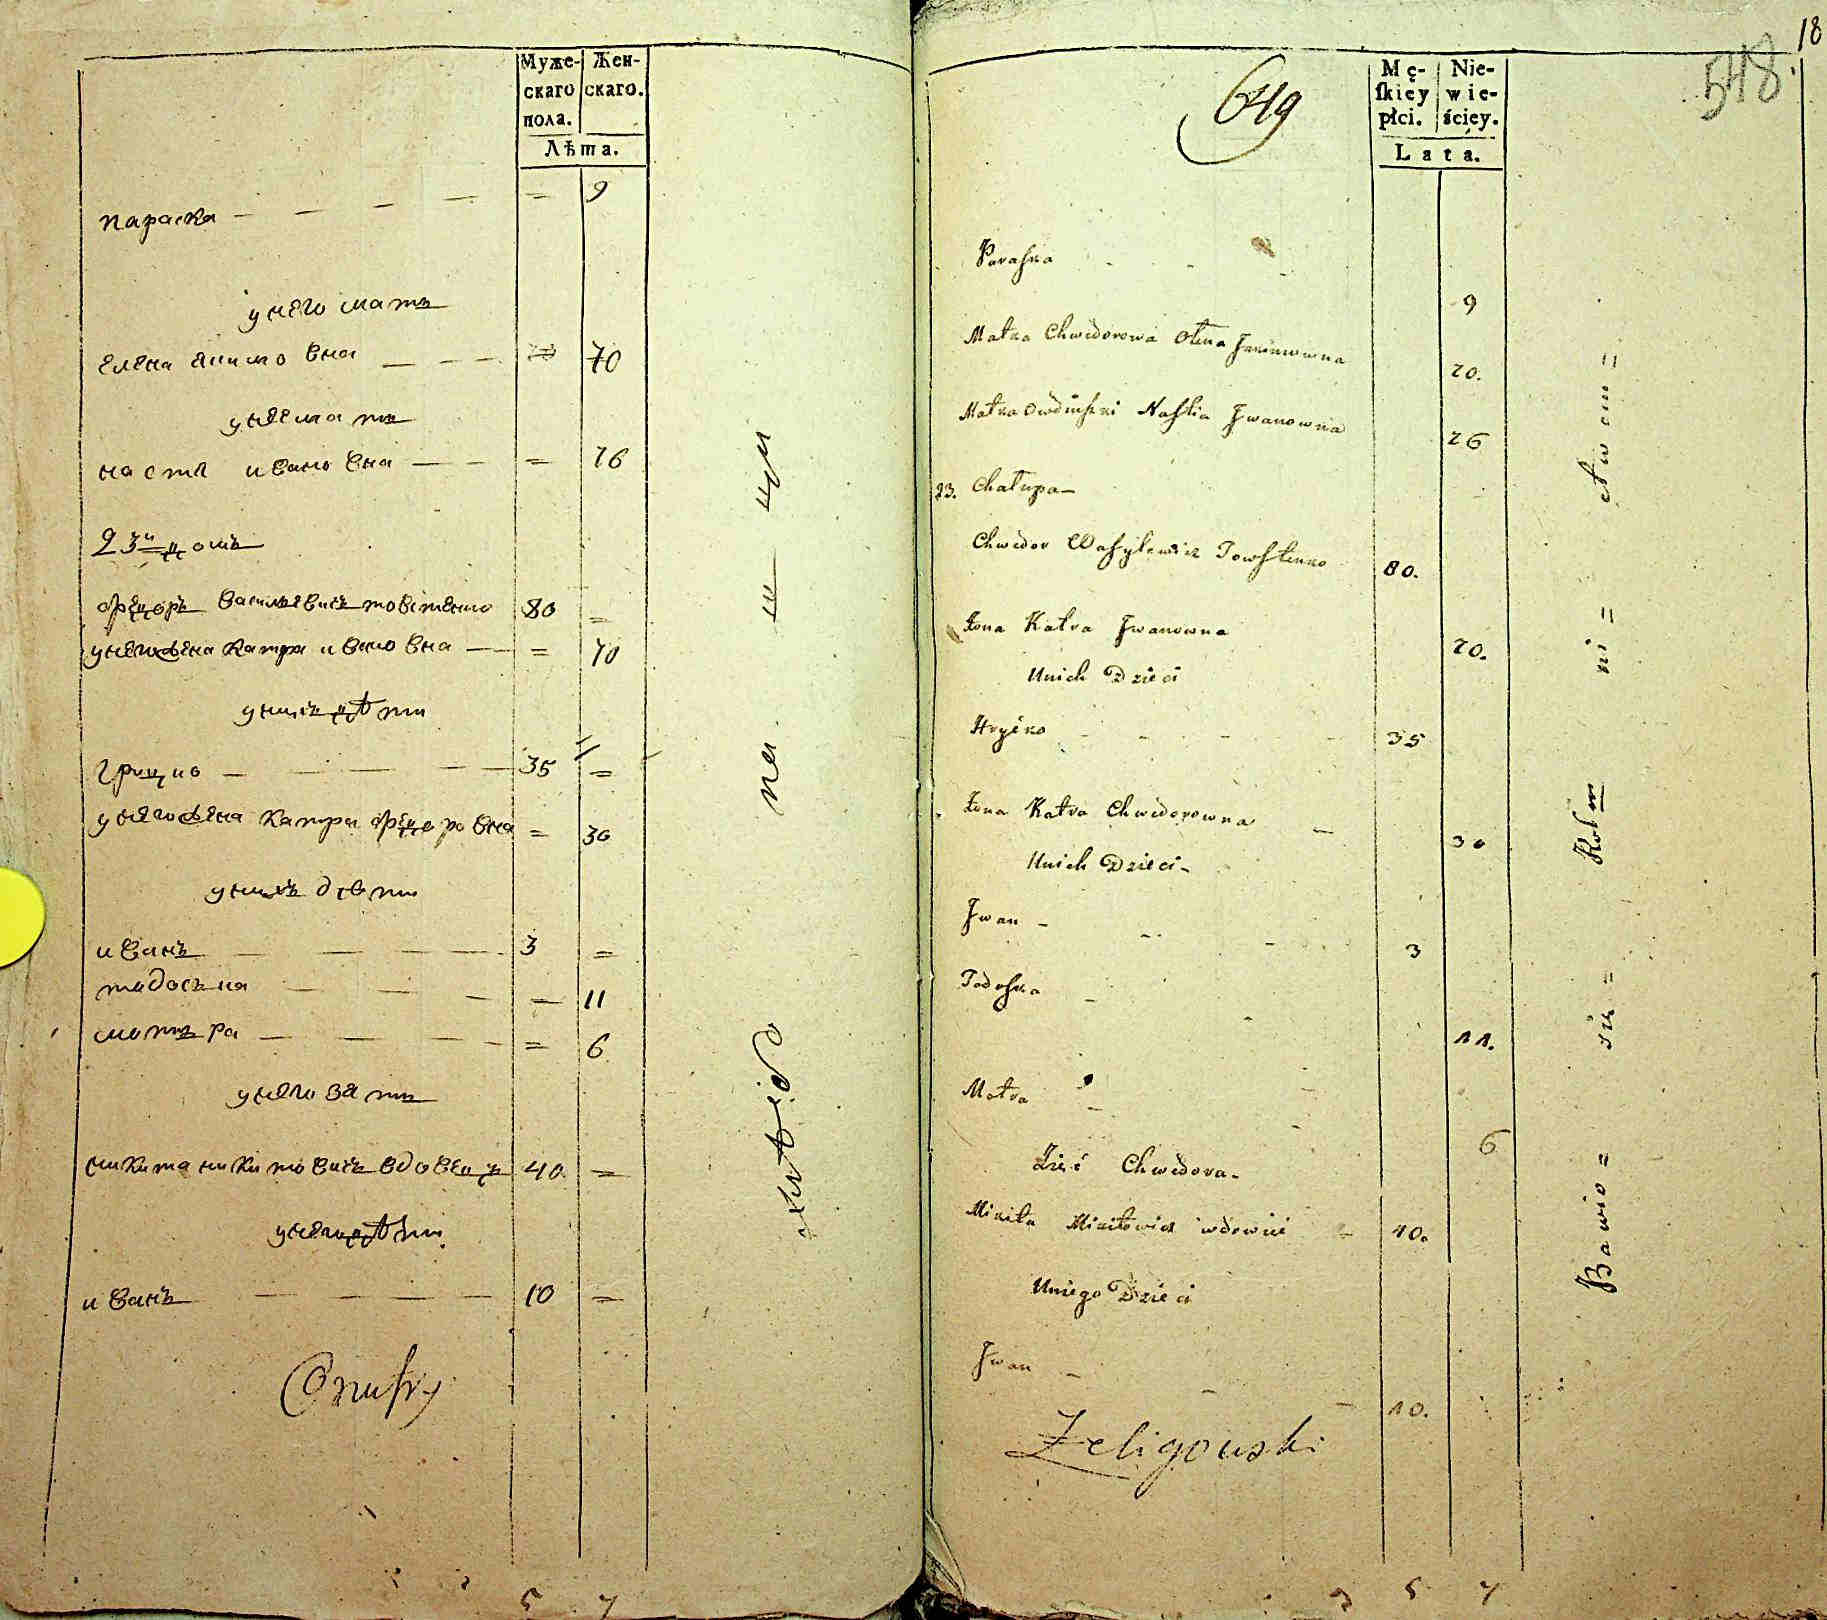 Муже-
скаго
пола.
Жен-
скаго.
Лѣта.
параска — — — — = 9
у него мать
елена акимовна — — — 70
у нее мать
настя ивановна — — = 76
23й домъ
федоръ василевичъ товстенко 80 =
у него жена катря ивановна — = 70
у нихъ дѣти
грицко — — — — 35 =
у него жена катря федоровна = 30
у нихъ дѣти
иванъ — — — 3 =
тодоська — — — — 11
мотря — — — — = 6
у него зять
никита никитовичъ вдовецъ 40 =
у него дѣти
иванъ — — — — 10 =
Onufry
18
548.
649
Mę-
ſkiey
płci.
Nie-
wie-
ściey.
Lata.
Paraska
9
Matka Chwedorowa Olena Jakimowna
70.
Matka Owdiuszki Nastia Jwanowna
76
23. Chałupa—
Chwedor Wasylewicz Towstenko 80.
Żona Katra Jwanowna 70.
Unich Dzieci
Hryćko 35
Żona Katra Chwedorowna 30
Unich Dzieci-
Jwan 3
Todoska 11.
Motra 6
Zięć Chwedora-
Mikita Mikitowicz wdowiec 40.
Uniego Dzieci
Jwan 10.
Zeligowski